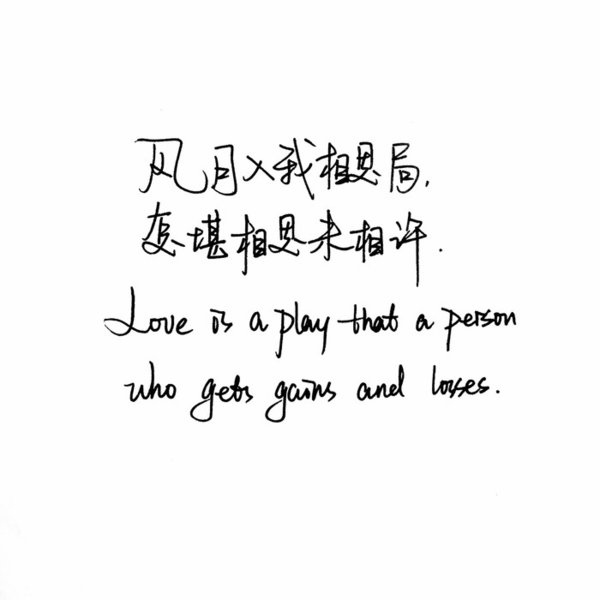 风月入我相思局,
怎堪相思未相许.
Love is a play that a person
who gets gains and losses.